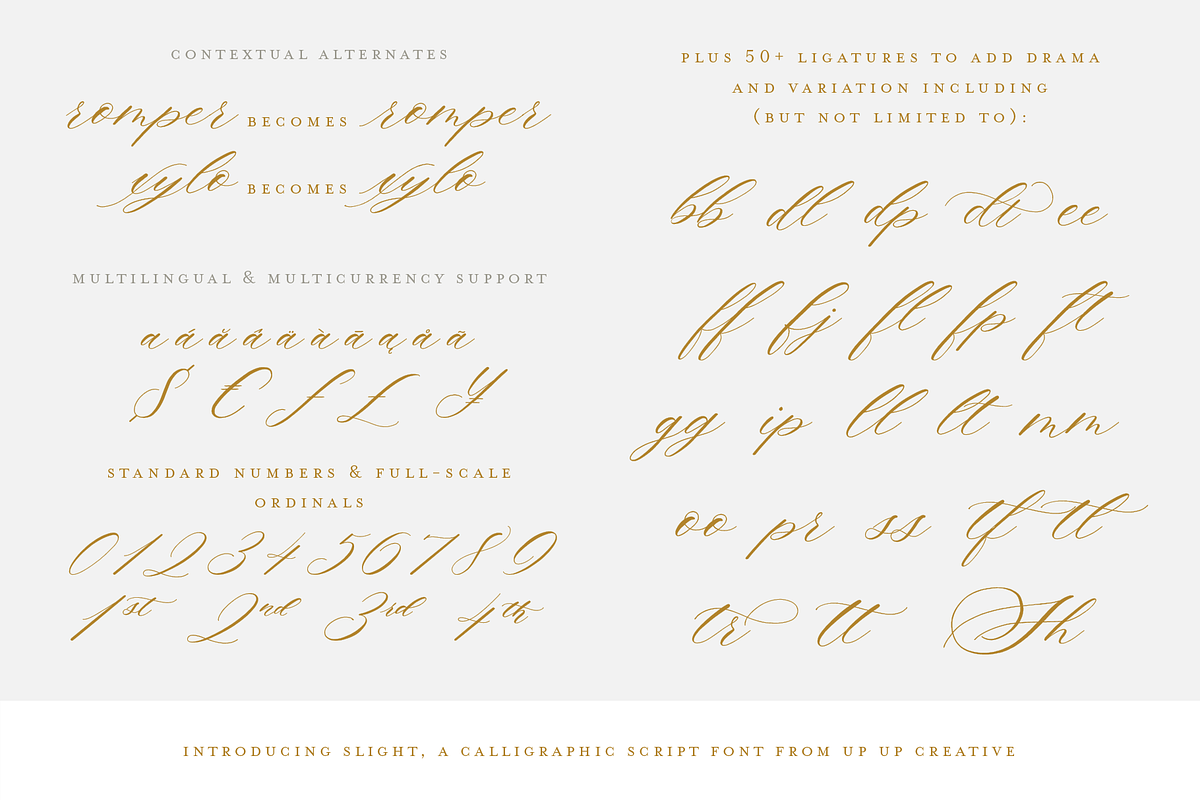 CONTEXTUAL ALTERNATES
romper BECOMES romper
xylo BECOMES xylo
MULTILINGUAL & MULTICURRENCY SUPPORT
a á ă â ä à ā ą å ã
$ € ƒ £ ¥
STANDARD NUMBERS & FULL-SCALE
ORDINALS
0 1 2 3 4 5 6 7 8 9
1st 2nd 3rd 4th
PLUS 50+ LIGATURES TO ADD DRAMA
AND VARIATION INCLUDING
(BUT NOT LIMITED TO):
bb dl dp dt ee
ff fj fl fp ft
gg ip ll lt mm
oo pr ss tf tl
tr tt Th
INTRODUCING SLIGHT, A CALLIGRAPHIC SCRIPT FONT FROM UP UP CREATIVE